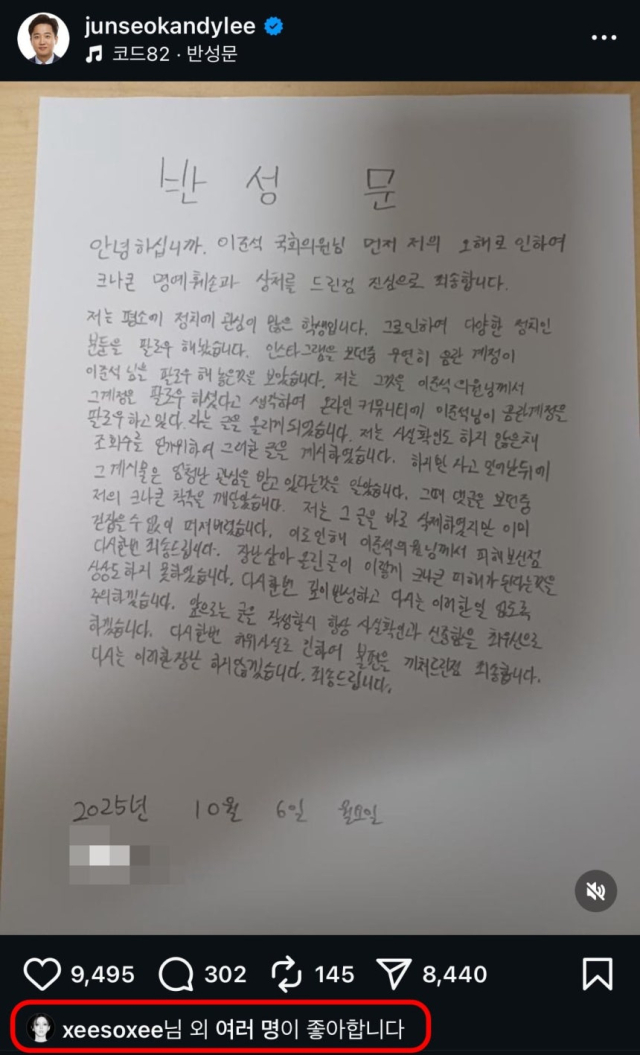 junseokandylee
코드82 · 반성문
반 성 문
안녕하십니까. 이준석 국회의원님 먼저 저의 오해로 인하여
크나큰 명예훼손과 상처를 드린점 진심으로 죄송합니다.
저는 평소에 정치에 관심이 많은 학생입니다. 그로인하여 다양한 정치인
분들을 팔로우 해놨습니다. 인스타그램을 보던중 우연히 음란 계정이
이준석 님을 팔로우 해 놓은것을 보았습니다. 저는 그것을 이준석 의원님께서
그계정을 팔로우 하셨다고 생각하여 온라인 커뮤니티에 이준석님이 음란계정을
팔로우하고 있다. 라는 글을 올리게 되었습니다. 저는 사실확인도 하지 않은채
조회수를 위하여 그러한 글을 게시하였습니다. 하지만 사고 일어난뒤에
그 게시물은 엄청난 관심을 받고 있다는것을 알았습니다. 그때 댓글을 보던중
저의 크나큰 착각을 깨달았습니다. 저는 그 글을 바로 삭제하였지만 이미
걷잡을수 없이 퍼져버렸습니다. 이로인해 이준석의원님께서 피해보신점
다시한번 죄송드립니다. 장난삼아 올린글이 이렇게 크나큰 피해가 된다는것을
상상도 하지 못하였습니다. 다시한번 깊이반성하고 다시는 이러한일 없도록
주의하겠습니다. 앞으로는 글을 작성할시 항상 사실확인과 신중함을 최우선으로
하겠습니다. 다시한번 허위사실로 인하여 불편을 끼쳐드린점 죄송합니다.
다시는 이러한장난 하지않겠습니다. 죄송드립니다.
2025년 10월 6일 월요일
9,495 302 145 8,440
xeesoxee님 외 여러 명이 좋아합니다